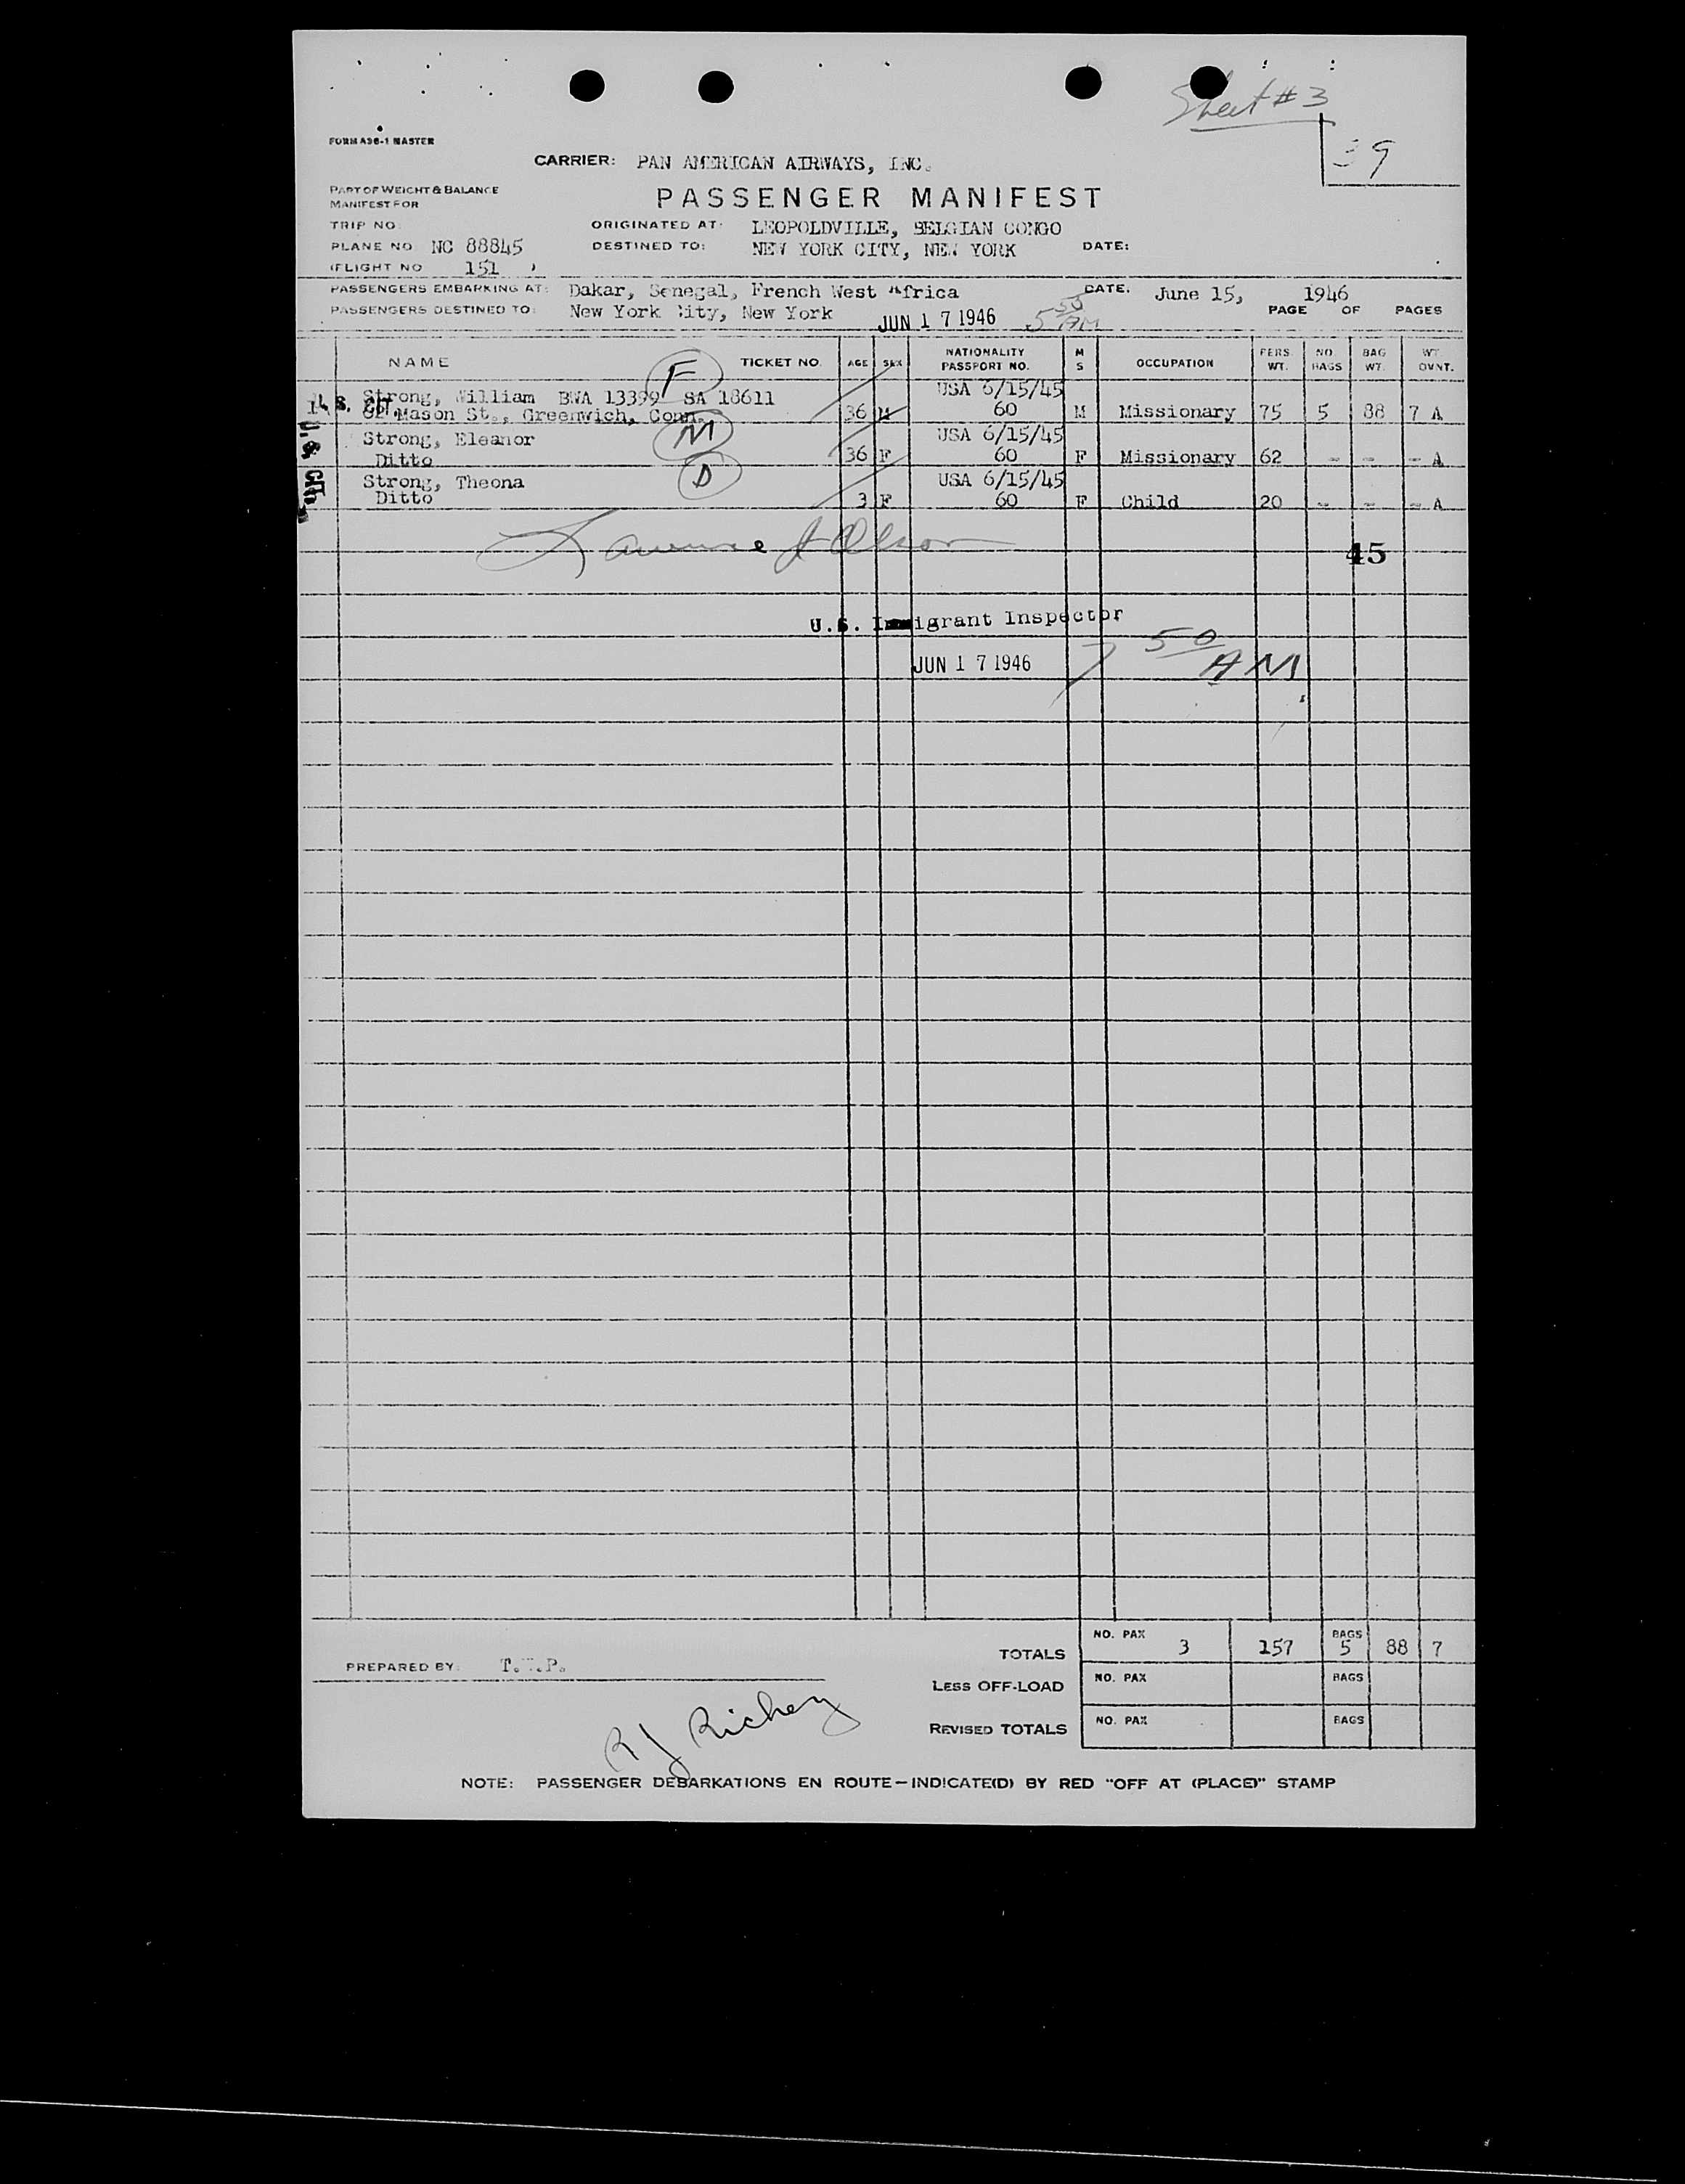 Sheet # 3
39
FORM A36-1 MASTER
CARRIER: PAN AMERICAN AIRWAYS, INC.
PART OF WEIGHT & BALANCE
MANIFEST FOR
PASSENGER MANIFEST
TRIP NO.
ORIGINATED AT: LEOPOLDVILLE, BELGIAN CONGO
PLANE NO. NC 88845 DESTINED TO: NEW YORK CITY, NEW YORK DATE:
(FLIGHT NO 151 )
PASSENGERS EMBARKING AT: Dakar, Senegal, French West Africa DATE. June 15, 1946
PASSENGERS DESTINED TO: New York City, New York JUN 17 1946 5 50 AM PAGE OF PAGES
NAME TICKET NO. AGE SEX NATIONALITY PASSPORT NO. M S OCCUPATION PERS. WT. NO. BAGS BAG WT. WT. OVNT.
Strong, William BWA 13399 SA 18611 F USA 6/15/45
U.S. CIT. Mason St., Greenwich, Conn. 36 M 60 M Missionary 75 5 88 7 A
Strong, Eleanor M USA 6/15/45
Ditto 36 F 60 F Missionary 62 - - - A
U.S. CIT.
Strong, Theona D USA 6/15/45
Ditto 3 F 60 F Child 20 - - - A
Lawrence J Olson
45
U.S. Immigrant Inspector
JUN 17 1946 7 50 AM
TOTALS NO. PAX 3 157 BAGS 5 88 7
PREPARED BY:
LESS OFF-LOAD NO. PAX BAGS
R J Richey
REVISED TOTALS NO. PAX BAGS
NOTE: PASSENGER DEBARKATIONS EN ROUTE—INDICATE(D) BY RED "OFF AT (PLACE)" STAMP